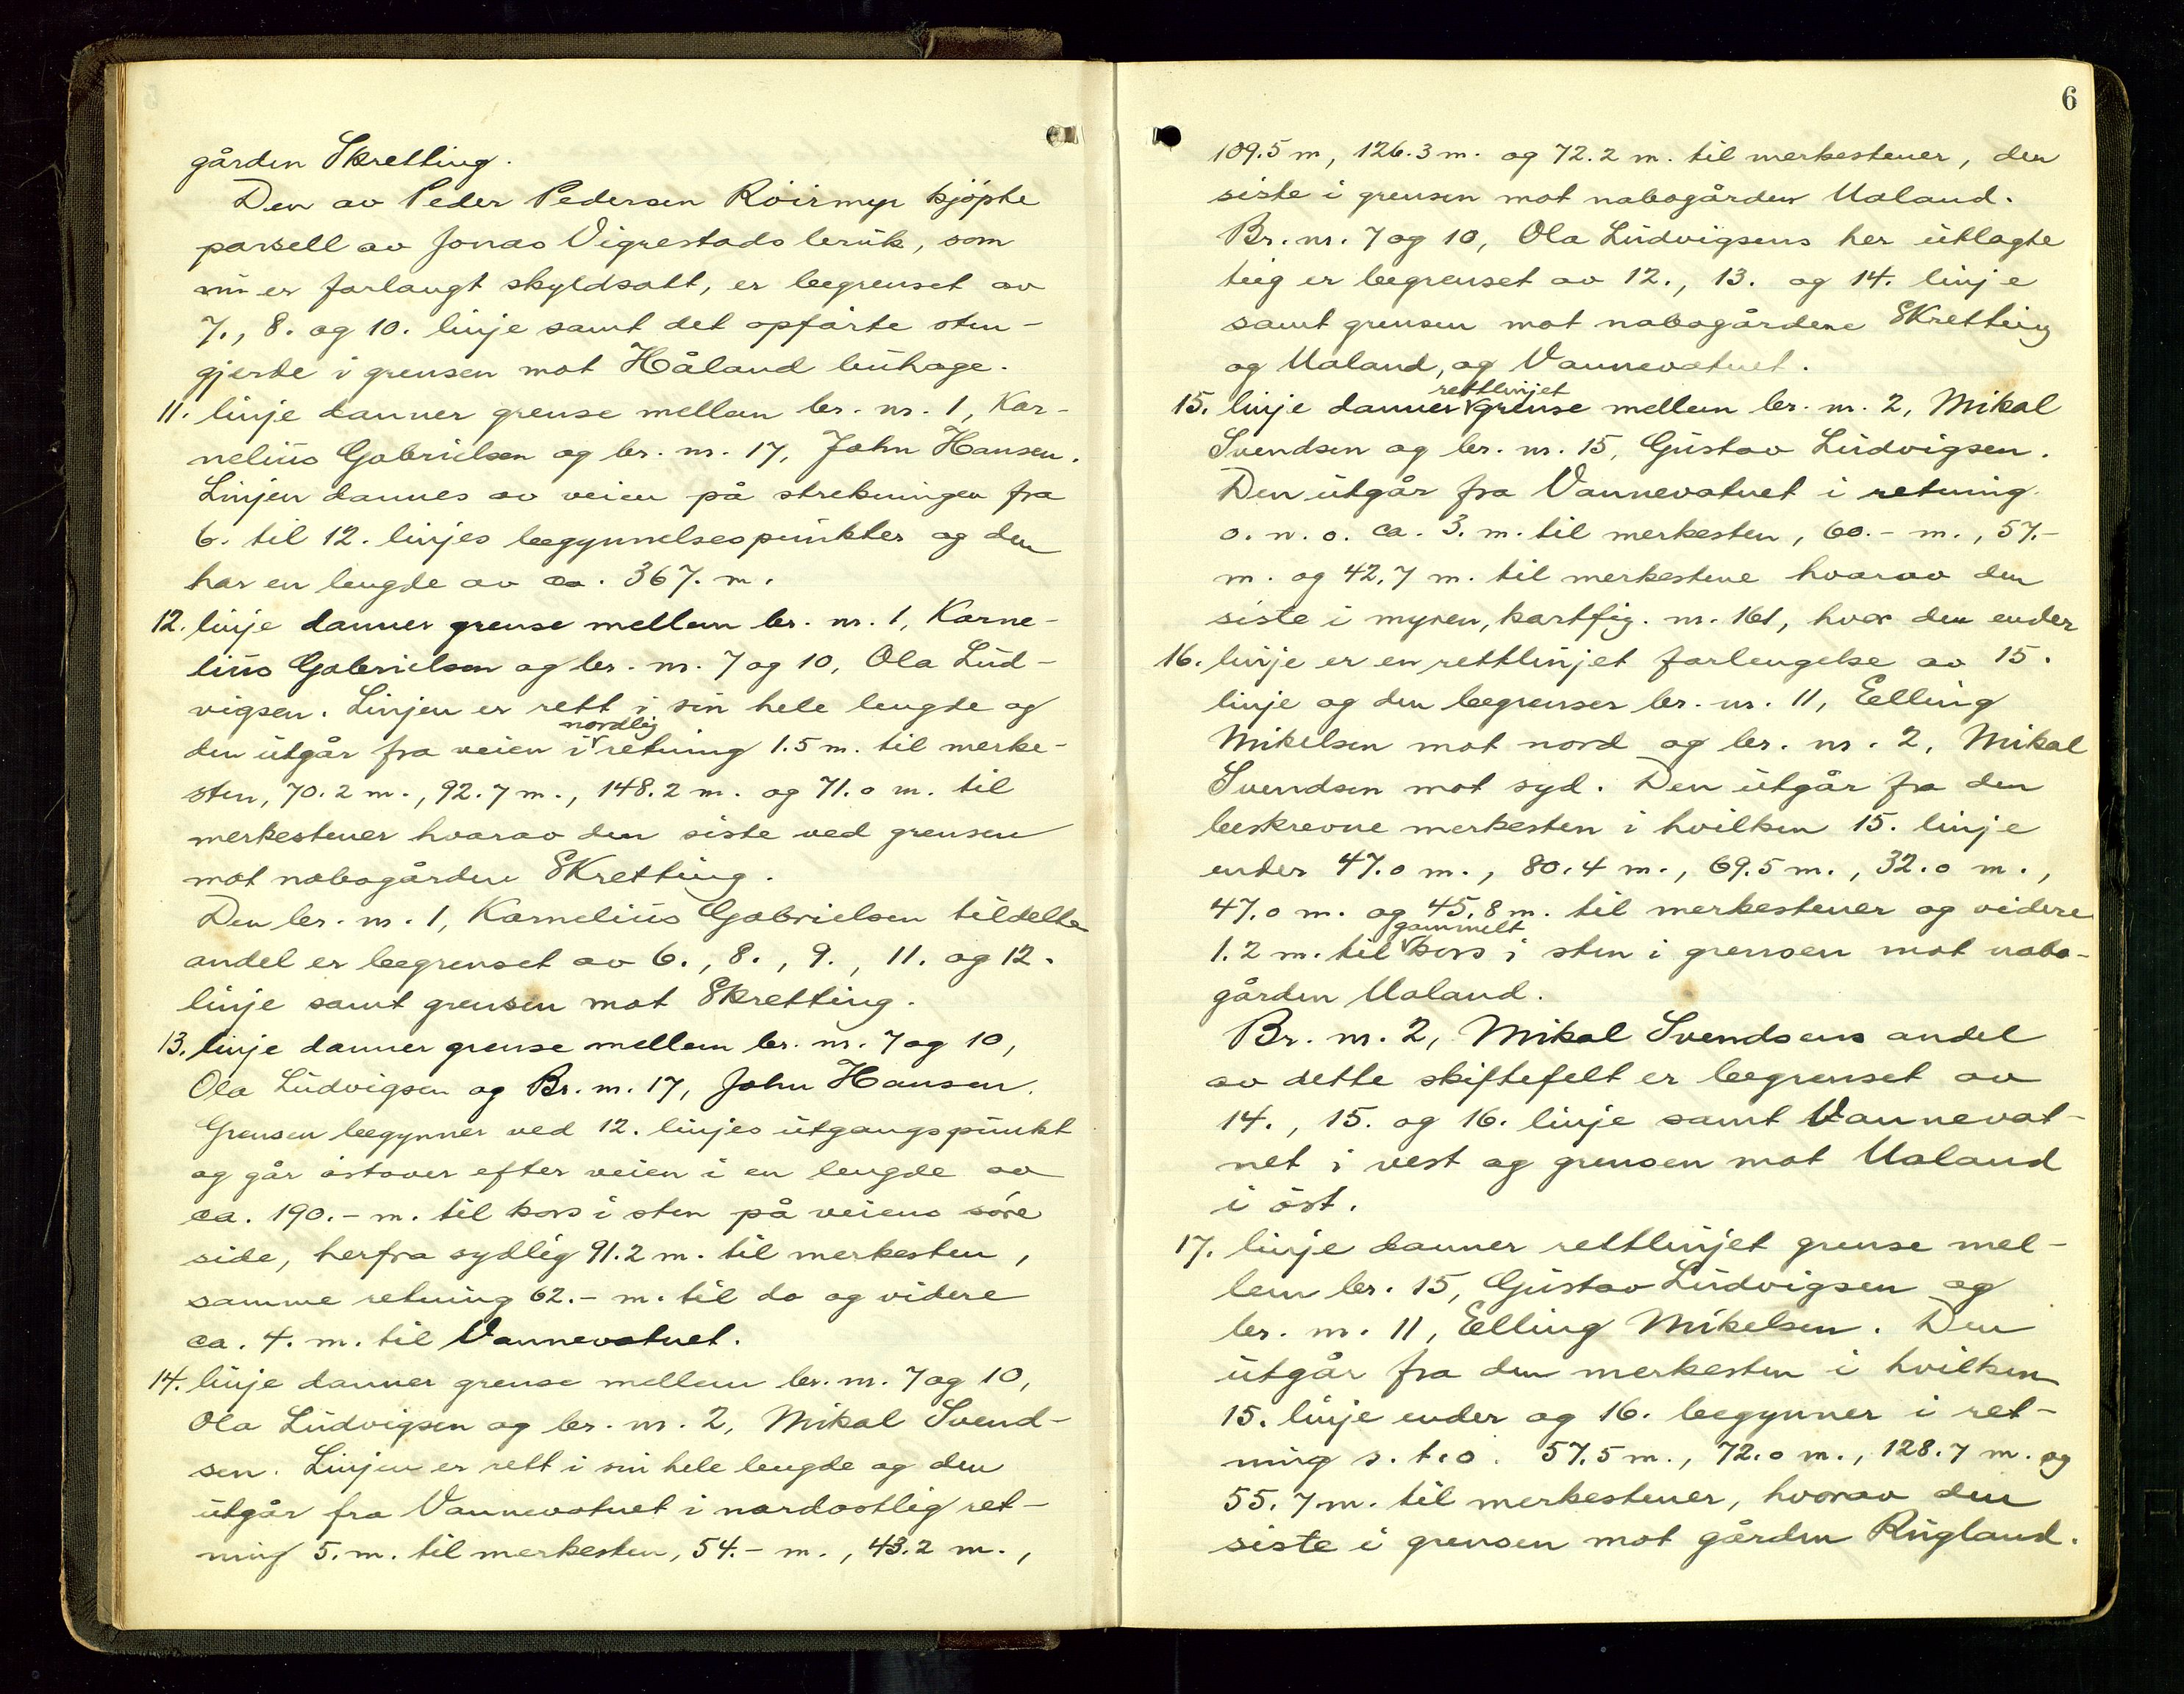 gården Skretting.
Den av Peder Pedersen Röirmyr kjöpte
parsell av Jonas Vigrestads bruk, som
nu er forlangt skyldsatt, er begrenset av
7., 8. og 10. linje samt det opförte sten-
gjerde i grensen mot Håland buhage.
11. linje danner grense mellem br. nr. 1, Kor-
nelius Gabrielsen og br. nr. 17, John Hansen.
Linjen dannes av veien på strekningen fra
6. til 12. linjes begynnelsespunkter og den
har en lengde av ca. 367. m.
12. linje danner grense mellem br. nr. 1, Korne-
lius Gabrielsen og br. nr. 7 og 10, Ola Lud-
vigsen. Linjen er rett i sin hele lengde og
den utgår fra veien i nordlig retning 1.5 m. til merke-
sten, 70.2 m., 92.7 m., 148.2 m. og 71.0 m. til
merkestener hvorav den siste ved grensen
mot nabogården Skretting.
Den br. nr. 1, Kornelius Gabrielsen tildelte
andel er begrenset av 6., 8., 9., 11. og 12.
linje samt grensen mot Skretting.
13. linje danner grense mellem br. nr. 7 og 10,
Ola Ludvigsen og Br. nr. 17, John Hansen.
Grensen begynner ved 12. linjes utgangspunkt
og går östover efter veien i en lengde av
ca. 190.- m. til kors i sten på veiens söre
side, herfra sydlig 91.2 m. til merkesten,
samme retning 62.- m. til do og videre
ca. 4. m. til Vannevatnet.
14. linje danner grense mellem br. nr. 7 og 10,
Ola Ludvigsen og br. nr. 2, Mikal Svend-
sen. Linjen er rett i sin hele lengde og den
utgår fra Vannevatnet i nordostlig ret-
ning 5. m. til merkesten, 54.- m., 43.2 m.,
6
109.5 m, 126.3 m. og 72.2 m. til merkestener, den
siste i grensen mot nabogården Ualand.
Br. nr. 7 og 10, Ola Ludvigsens her utlagte
teig er begrenset av 12., 13. og 14. linje
samt grensen mot nabogårdene Skretting
og Ualand, og Vannevatnet.
15. linje danner rettlinjet grense mellem br. nr. 2, Mikal
Svendsen og br. nr. 15, Gustav Ludvigsen.
Den utgår fra Vannevatnet i retning
o. n. o. ca. 3. m. til merkesten, 60.- m., 57.-
m. og 42.7 m. til merkestene hvorav den
siste i myren, kartfig. nr. 161, hvor den ender
16. linje er en rettlinjet forlengelse av 15.
linje og den begrenser br. nr. 11, Eelling
Mikelsen mot nord og br. nr. 2, Mikal
Svendsen mot syd. Den utgår fra den
beskrevne merkesten i hvilken 15. linje
ender 47.0 m., 80.4 m., 69.5 m., 32.0 m.,
47.0 m. og 45.8 m. til merkestener og videre
1.2 m. til gammelt kors i sten i grensen mot nabo-
gården Ualand.
Br. nr. 2, Mikal Svendsens andel
av dette skiftefelt er begrenset av
14., 15. og 16. linje samt Vannevat-
net i vest og grensen mot Ualand
i öst.
17. linje danner rettlinjet grense mel-
lem br. 15, Gustav Ludvigsen og
br. nr. 11, Eelling Mikelsen. Den
utgår fra den merkesten i hvilken
15. linje ender og 16. begynner i ret-
ning s. t. o. 57.5 m., 72.0 m., 128.7 m. og
55.7 m. til merkestener, hvorav den
siste i grensen mot gården Rugland.